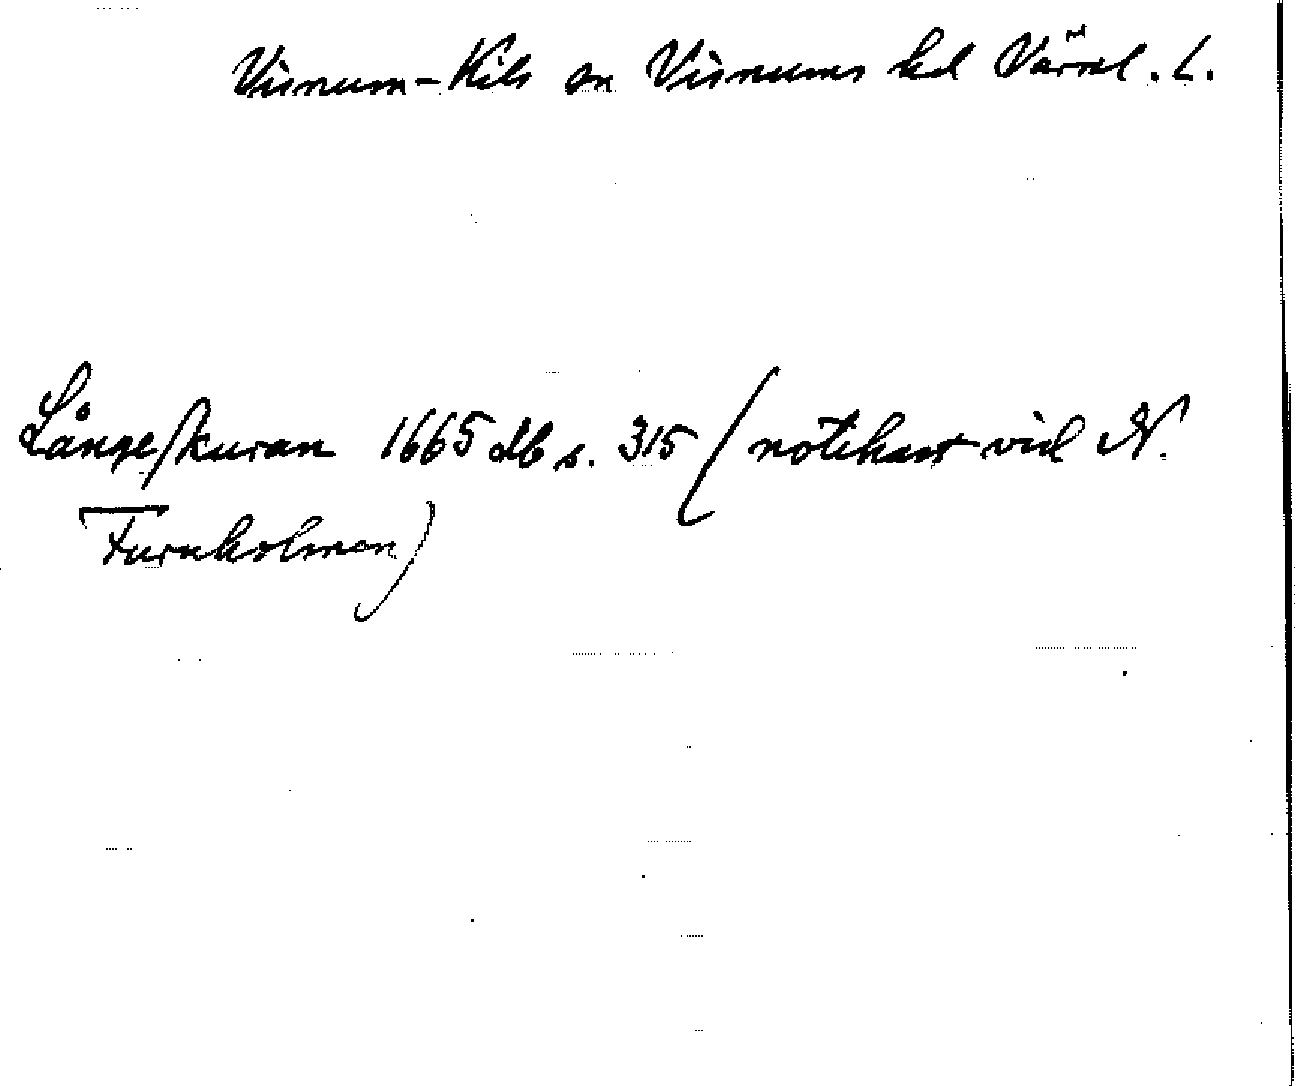 Visnum-Kils sn Visnums hd Värml. L.
Långe/kuran 1665 db s. 315 (notekast vid N.
Furuholmen)